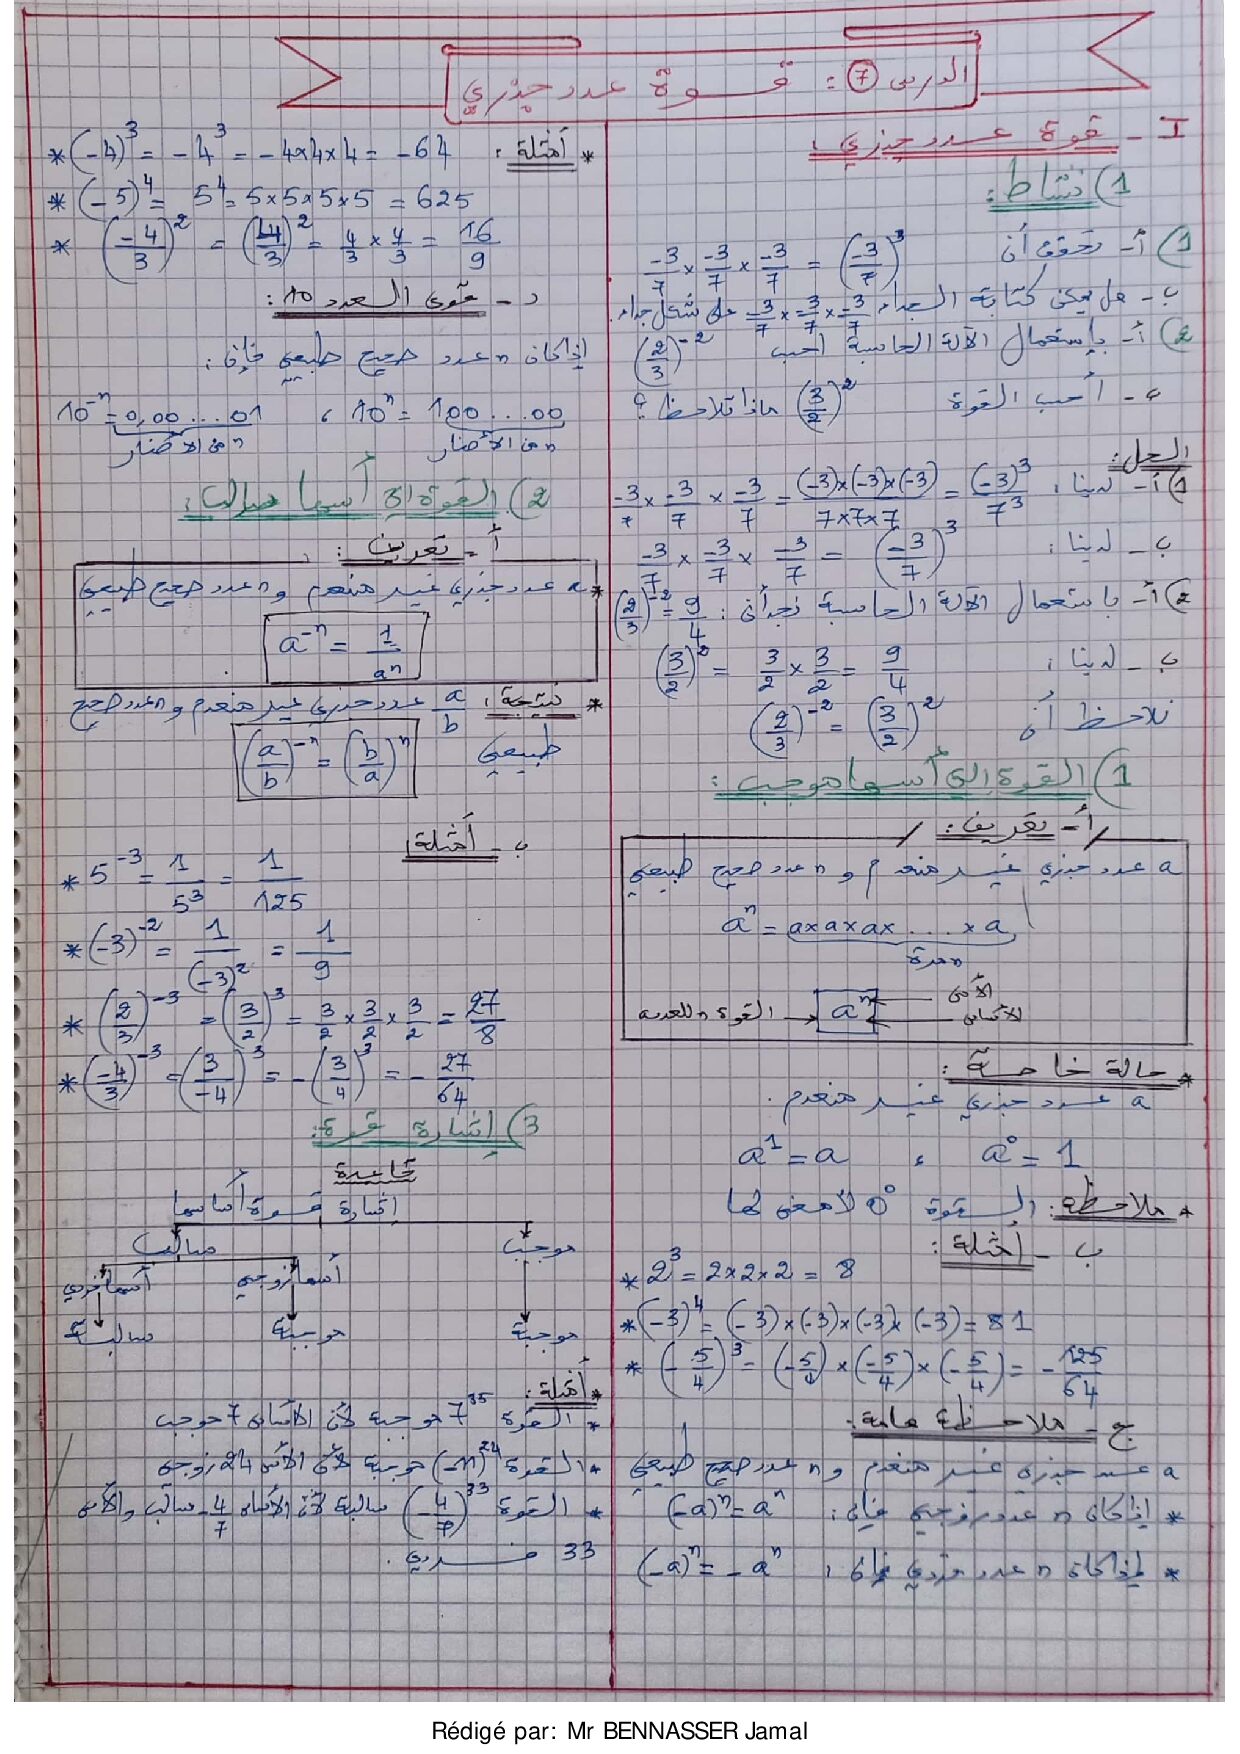 الدرس 7 : قوة عدد جذري
I - قوة عدد جذري :
1) نشاط :
1) أ - تحقق أن -3/7 × -3/7 × -3/7 = (-3/7)³
ب - هل يمكن كتابة الجداء -3/7 × -3/7 × -3/7 على شكل جداء
2) أ - بإستعمال الآلة الحاسبة أحب (2/3)⁻²
ب - أحب القوة (3/2)² ماذا تلاحظ ؟
الحل :
1) أ - لدينا : -3/7 × -3/7 × -3/7 = (-3)×(-3)×(-3)/7×7×7 = (-3)³/7³
ب - لدينا : -3/7 × -3/7 × -3/7 = (-3/7)³
2) أ - باستعمال الآلة الحاسبة نجد أن : (2/3)⁻² = 9/4
ب - لدينا : (3/2)² = 3/2 × 3/2 = 9/4
نلاحظ أن (2/3)⁻² = (3/2)²
1) القوة التي أسها موجب :
أ - تعريف :
a عدد جذري غير منعدم و n عدد صحيح طبيعي
aⁿ = a×a×a× .... ×a
n مرة
الأس
القوة n للعدد a → aⁿ ← الأساس
* حالة خاصة :
a عدد جذري غير منعدم .
a¹ = a ، a⁰ = 1
* ملاحظة : القوة 0⁰ لا معنى لها
ب - أمثلة :
* 2³ = 2×2×2 = 8
* (-3)⁴ = (-3)×(-3)×(-3)×(-3) = 81
* (-5/4)³ = (-5/4)×(-5/4)×(-5/4) = -125/64
ج - ملاحظة هامة :
a عدد جذري غير منعدم و n عدد صحيح طبيعي
* إذا كان n عدد زوجي فإن : (-a)ⁿ = aⁿ
* إذا كان n عدد فردي فإن : (-a)ⁿ = -aⁿ
* أمثلة :
* (-4)³ = -4³ = -4×4×4 = -64
* (-5)⁴ = 5⁴ = 5×5×5×5 = 625
* (-4/3)² = (4/3)² = 4/3 × 4/3 = 16/9
د - قوى العدد 10 :
إذا كان n عدد صحيح طبيعي فإن :
10⁻ⁿ = 0,00....01 ، 10ⁿ = 100....00
n من الأصفار n من الأصفار
2) القوة التي أسها سالب :
أ - تعريف :
* a عدد جذري غير منعدم و n عدد صحيح طبيعي
a⁻ⁿ = 1/aⁿ
* نتيجة : a/b عدد جذري غير منعدم و n عدد صحيح
طبيعي
(a/b)⁻ⁿ = (b/a)ⁿ
ب - أمثلة :
* 5⁻³ = 1/5³ = 1/125
* (-3)⁻² = 1/(-3)² = 1/9
* (2/3)⁻³ = (3/2)³ = 3/2 × 3/2 × 3/2 = 27/8
* (-4/3)⁻³ = (3/-4)³ = -(3/4)³ = -27/64
3) إشارة قوة :
قاعدة
إشارة قوة أساسها
موجب سالب
أسها زوجي أسها فردي
موجبة موجبة سالبة
* أمثلة :
* القوة 7³⁵ موجبة لأن الأساس 7 موجب
* القوة (-11)²⁴ موجبة لأن الأس 24 زوجي
* القوة (-4/7)³³ سالبة لأن الأساس -4/7 سالب والأس
33 فردي .
Rédigé par: Mr BENNASSER Jamal